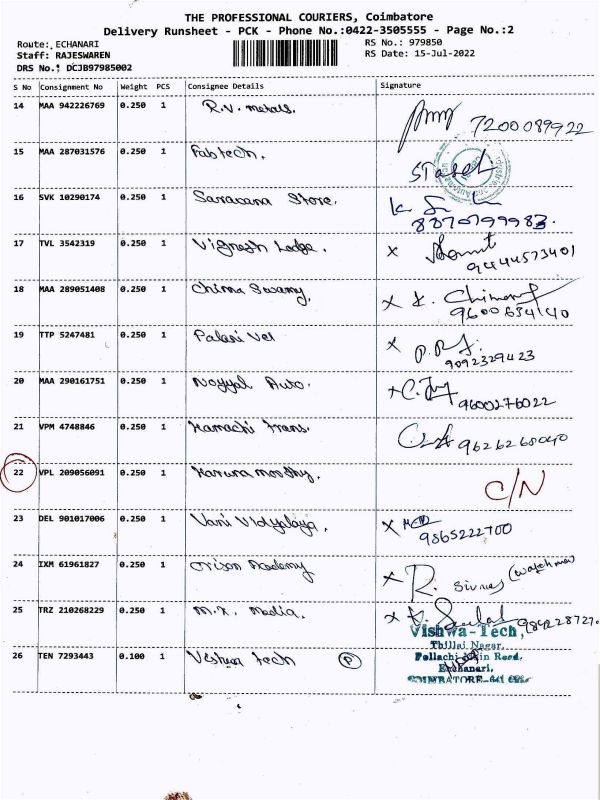 THE PROFESSIONAL COURIERS, Coimbatore
Delivery Runsheet - PCK - Phone No.:0422-3505555 - Page No.:2
Route: ECHANARI RS No.: 979850
Staff: RAJESWAREN RS Date: 15-Jul-2022
DRS No.: DCJB97985002
S No Consignment No Weight PCS Consignee Details Signature
14 MAA 942226769 0.250 1 R.V. metals. 7200089922
15 MAA 287031576 0.250 1 Fabtech.
16 SVK 10290174 0.250 1 Saravana Store. 8870799983.
17 TVL 3542319 0.250 1 Vignesh Lodge. x 9444573401
18 MAA 289051408 0.250 1 Chinna Swamy. x 9600634140
19 TTP 5247481 0.250 1 Palani Vel x P.R 9092329423
20 MAA 290161751 0.250 1 Noyyal Auto. 9600276022
21 VPM 4748846 0.250 1 Kamachi Trans. 9626268040
22 VPL 209056091 0.250 1 Karuna moorthy. C/N
23 DEL 901017006 0.250 1 Vani Vidyalaya. x 9865222700
24 IXM 61961827 0.250 1 Orison Academy x R. (watchman)
25 TRZ 210268229 0.250 1 M.K. Media. x
Vishwa-Tech,
Thillai Nagar,
26 TEN 7293443 0.100 1 Vishwa tech P Pollachi Main Road,
Echanari,
COIMBATORE-641